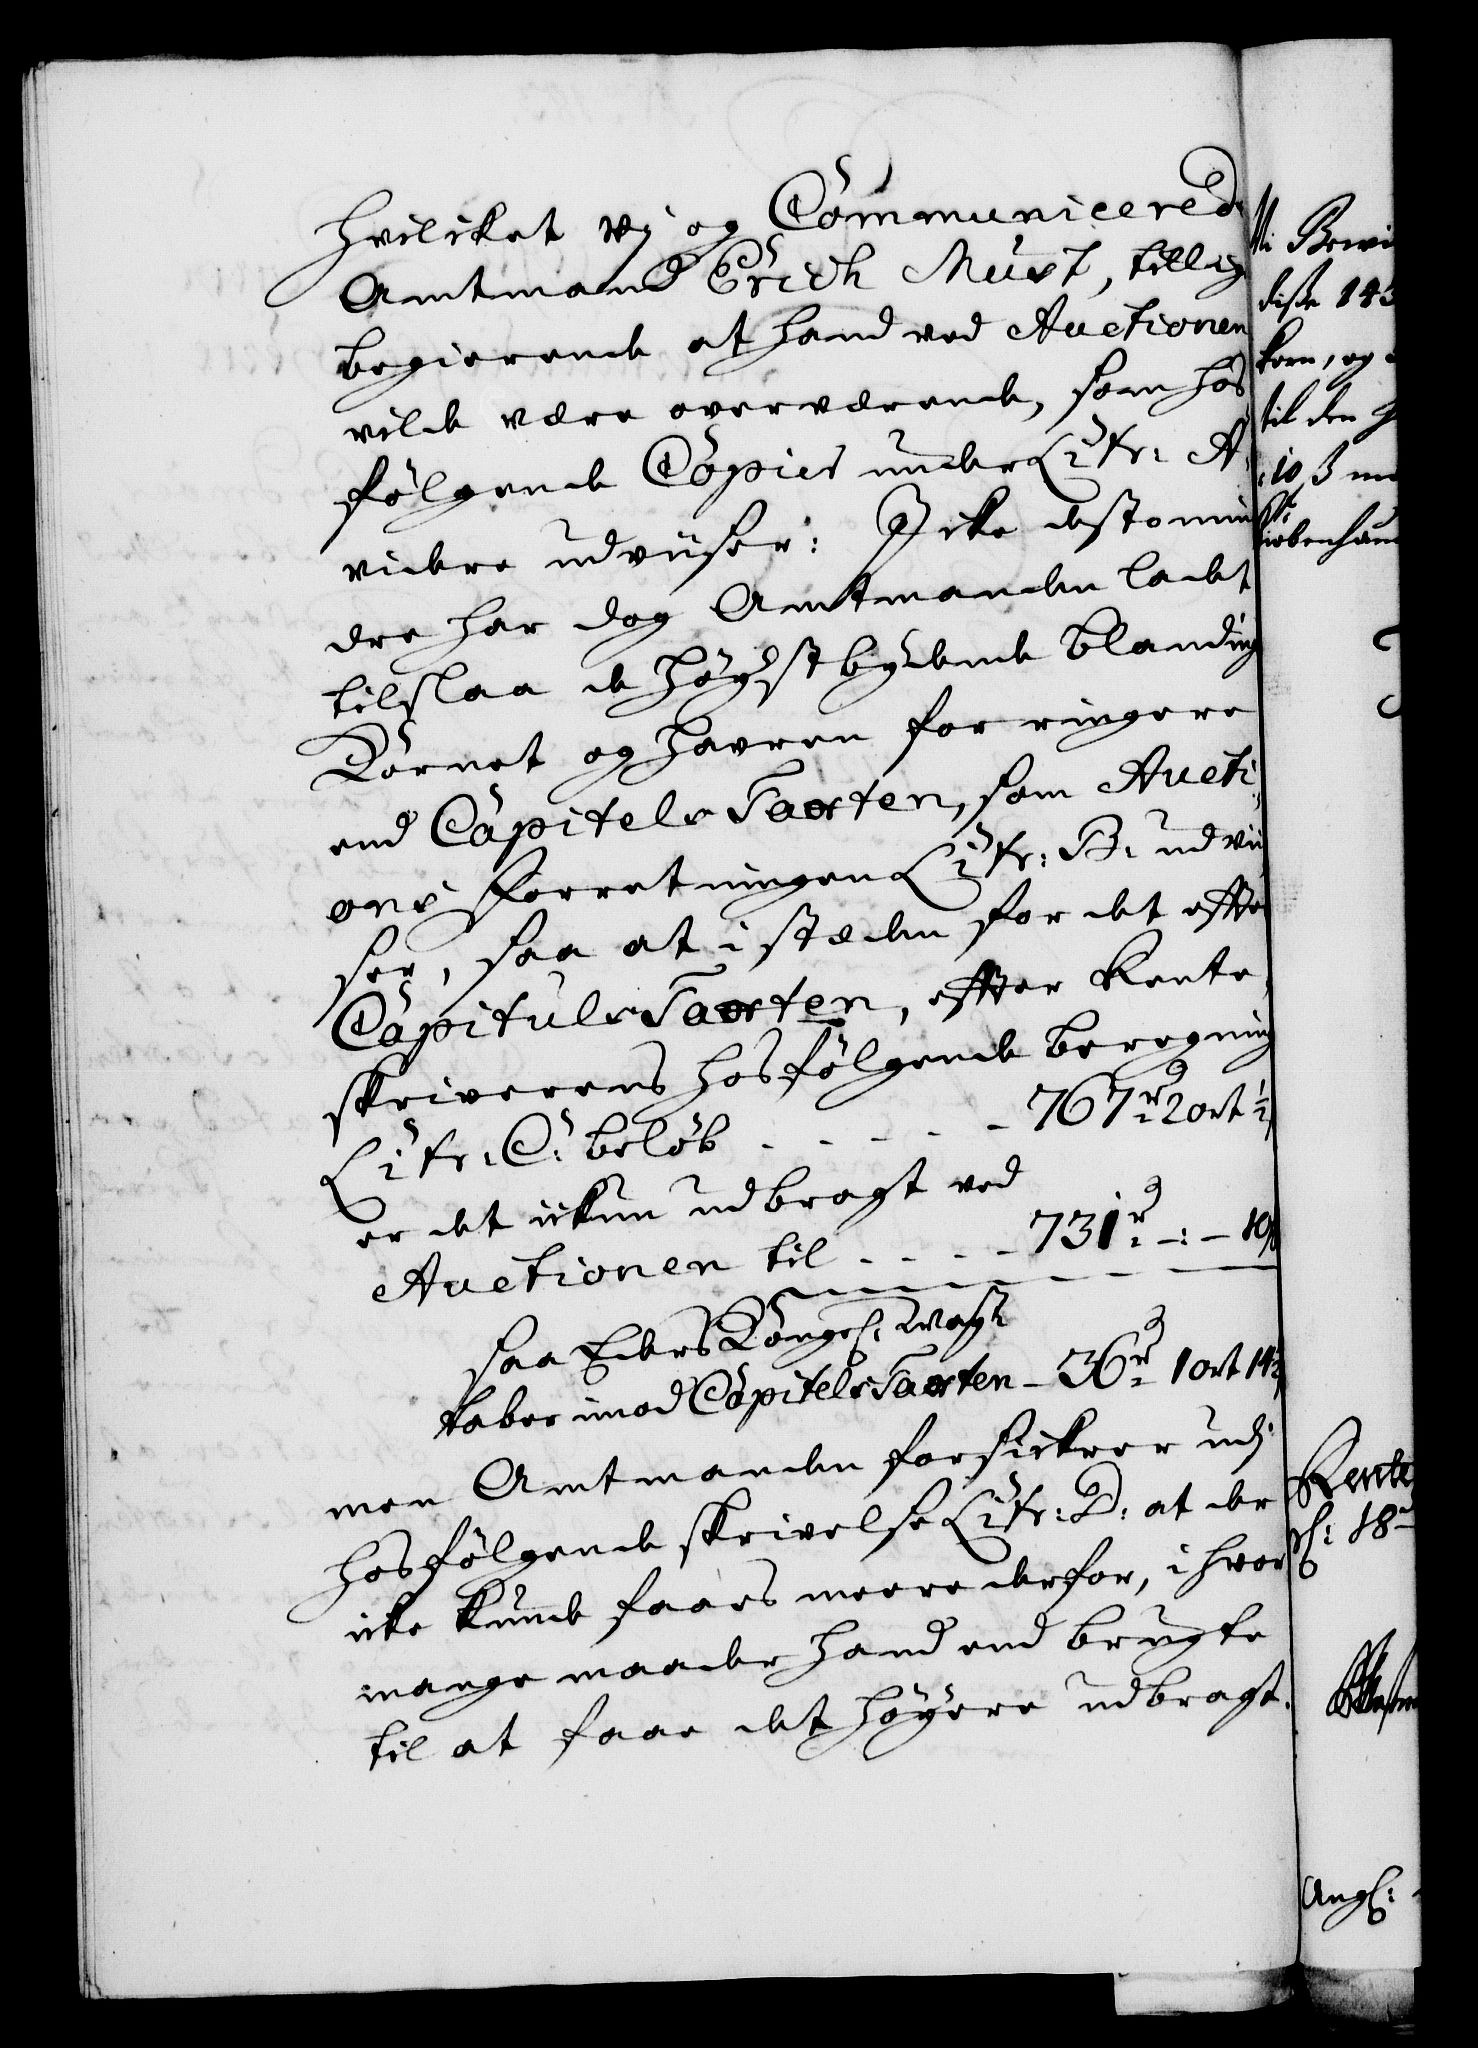 hvilcket vj og Communicerede
Amtmand Erich Munt, tillig
begierende at hand ved Auctionen
vilde være overværende, som hos
fölgende Copies under Litr: A.
videre udviiser: Icke desto min
dre har dog Amtmanden ladet
tilslaa de höystbydende blanding
Kornet og havren for ringere
end Capitels Taxten, som Aucti
ons forretningen Litr: B: udvii
ser, saa at i stæden for det effter
Capituls Taxten, effter Rente
skriverens hosfölgende beregning
Litr: C: belöb - - - - - 767 rd 2 ort ½
er det ickun udbragt ved
Auctionen til - - - - 731 rd - : - 10
saa Eders Kongel: Mayt
taber imod Capitels Taxten - 36 rd 1 ort 14
men Amtmanden forsickrer udj
hosfölgende skrivelse Litr: D: at der
icke kunde faaes meere derfor, i hvor
mange maader hand end brugte
til at faae det höyere udbragt.
disse 143
korn, og
til den
10 β
Rente
18